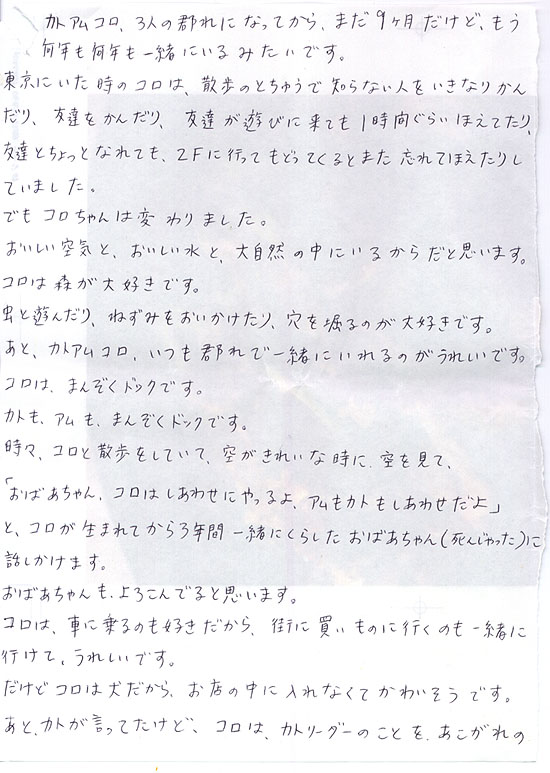 カトアムコロ、3人の郡れになってから、まだ9ヶ月だけど、もう
何年も何年も一緒にいるみたいです。
東京にいた時のコロは、散歩のとちゅうで知らない人をいきなりかん
だり、友達をかんだり、友達が遊びに来ても1時間ぐらいほえてたり、
友達とちょっとなれても、2Fに行ってもどってくるとまた忘れてほえたりし
ていました。
でもコロちゃんは変わりました。
おいしい空気と、おいしい水と、大自然の中にいるからだと思います。
コロは森が大好きです。
虫と遊んだり、ねずみをおいかけたり、穴を堀るのが大好きです。
あと、カトアムコロ、いつも郡れで一緒にいれるのがうれしいです。
コロは、まんぞくドックです。
カトも、アムも、まんぞくドックです。
時々、コロと散歩をしていて、空がきれいな時に、空を見て、
「おばあちゃん、コロはしあわせにやってるよ、アムもカトもしあわせだよ」
と、コロが生まれてから3年間一緒にくらしたおばあちゃん(死んじゃった)に
話しかけます。
おばあちゃんも、よろこんでると思います。
コロは、車に乗るのも好きだから、街に買いものに行くのも一緒に
行けて、うれしいです。
だけどコロは犬だから、お店の中に入れなくてかわいそうです。
あと、カトが言ってたけど、コロは、カトリーダーのことを、あこがれの